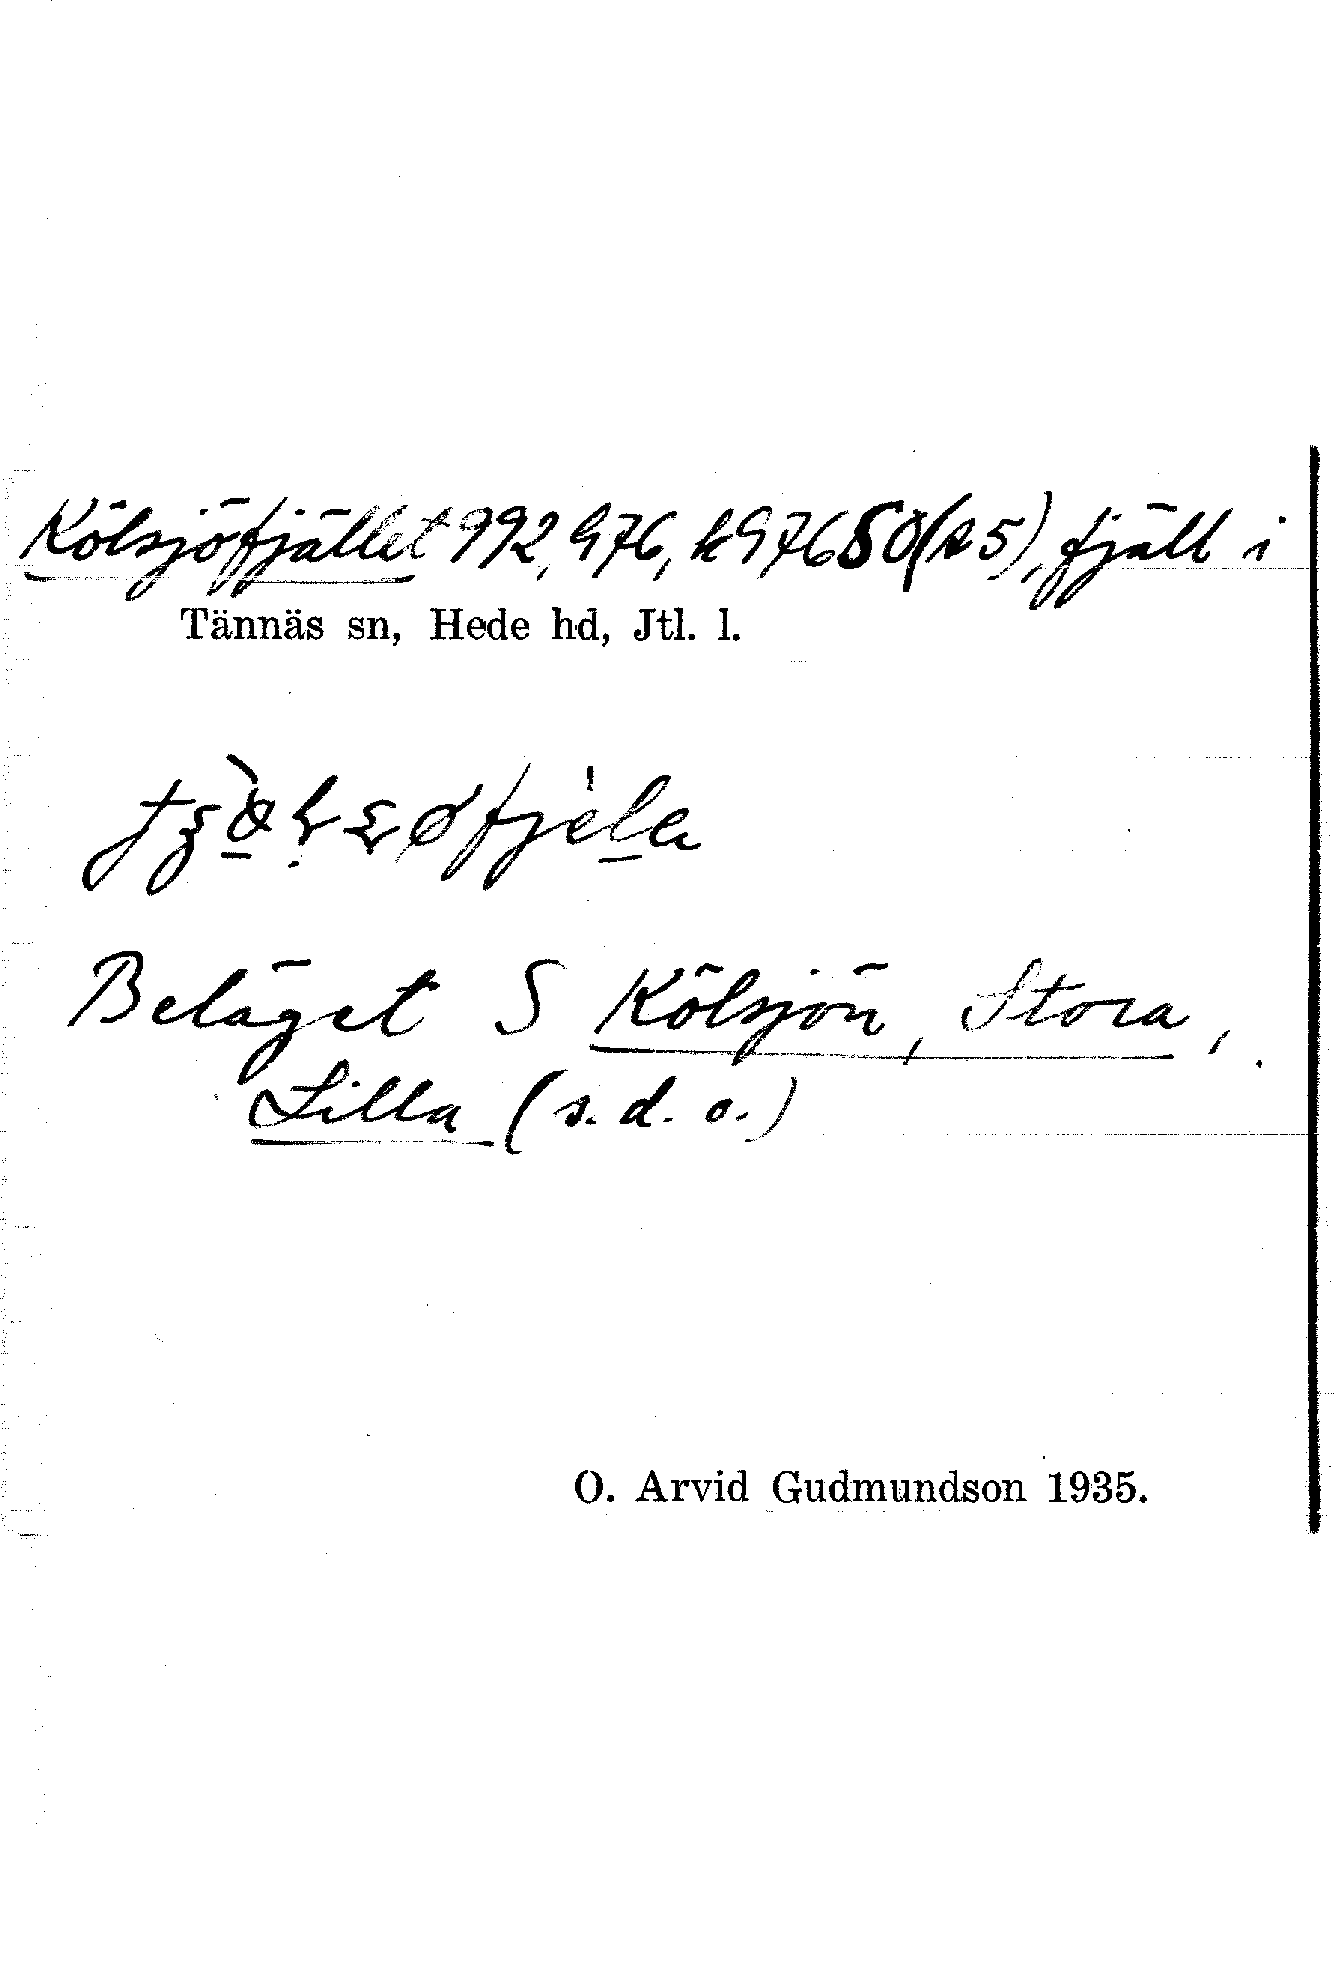 Kölsjöfjället 992, 976, k976SO(k5), fjäll i
Tännäs sn, Hede hd, Jtl. l.
Beläget S Kölsjön, Stora,
Lilla (s. d. o.)
O. Arvid Gudmundson 1935.